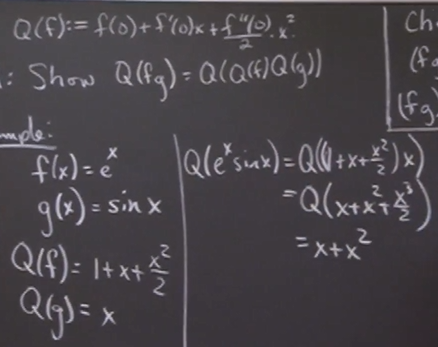 Q(f) := f(0) + f'(0)x + f''(0)/2 · x²
: Show Q(fg) = Q(Q(f)Q(g))
mple:
f(x) = eˣ
g(x) = sin x
Q(f) = 1 + x + x²/2
Q(g) = x
Q(eˣ sin x) = Q((1 + x + x²/2) x)
= Q(x + x² + x³/2)
= x + x²
Ch
(f
(fg)